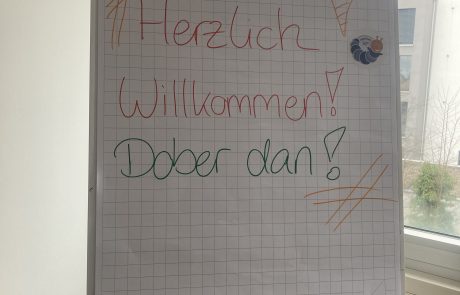 Herzlich
Willkommen!
Dober dan!